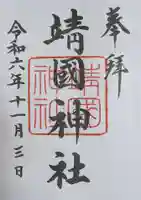 奉拝
靖國神社
令和六年十一月三日
靖國神社